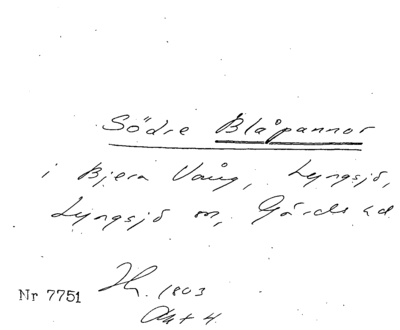 Södre Blåpannor
i Bjera Vång, Lyngsjö,
Lyngsjö sn, Gärds hd
Nr 7751
1803
Akt 4